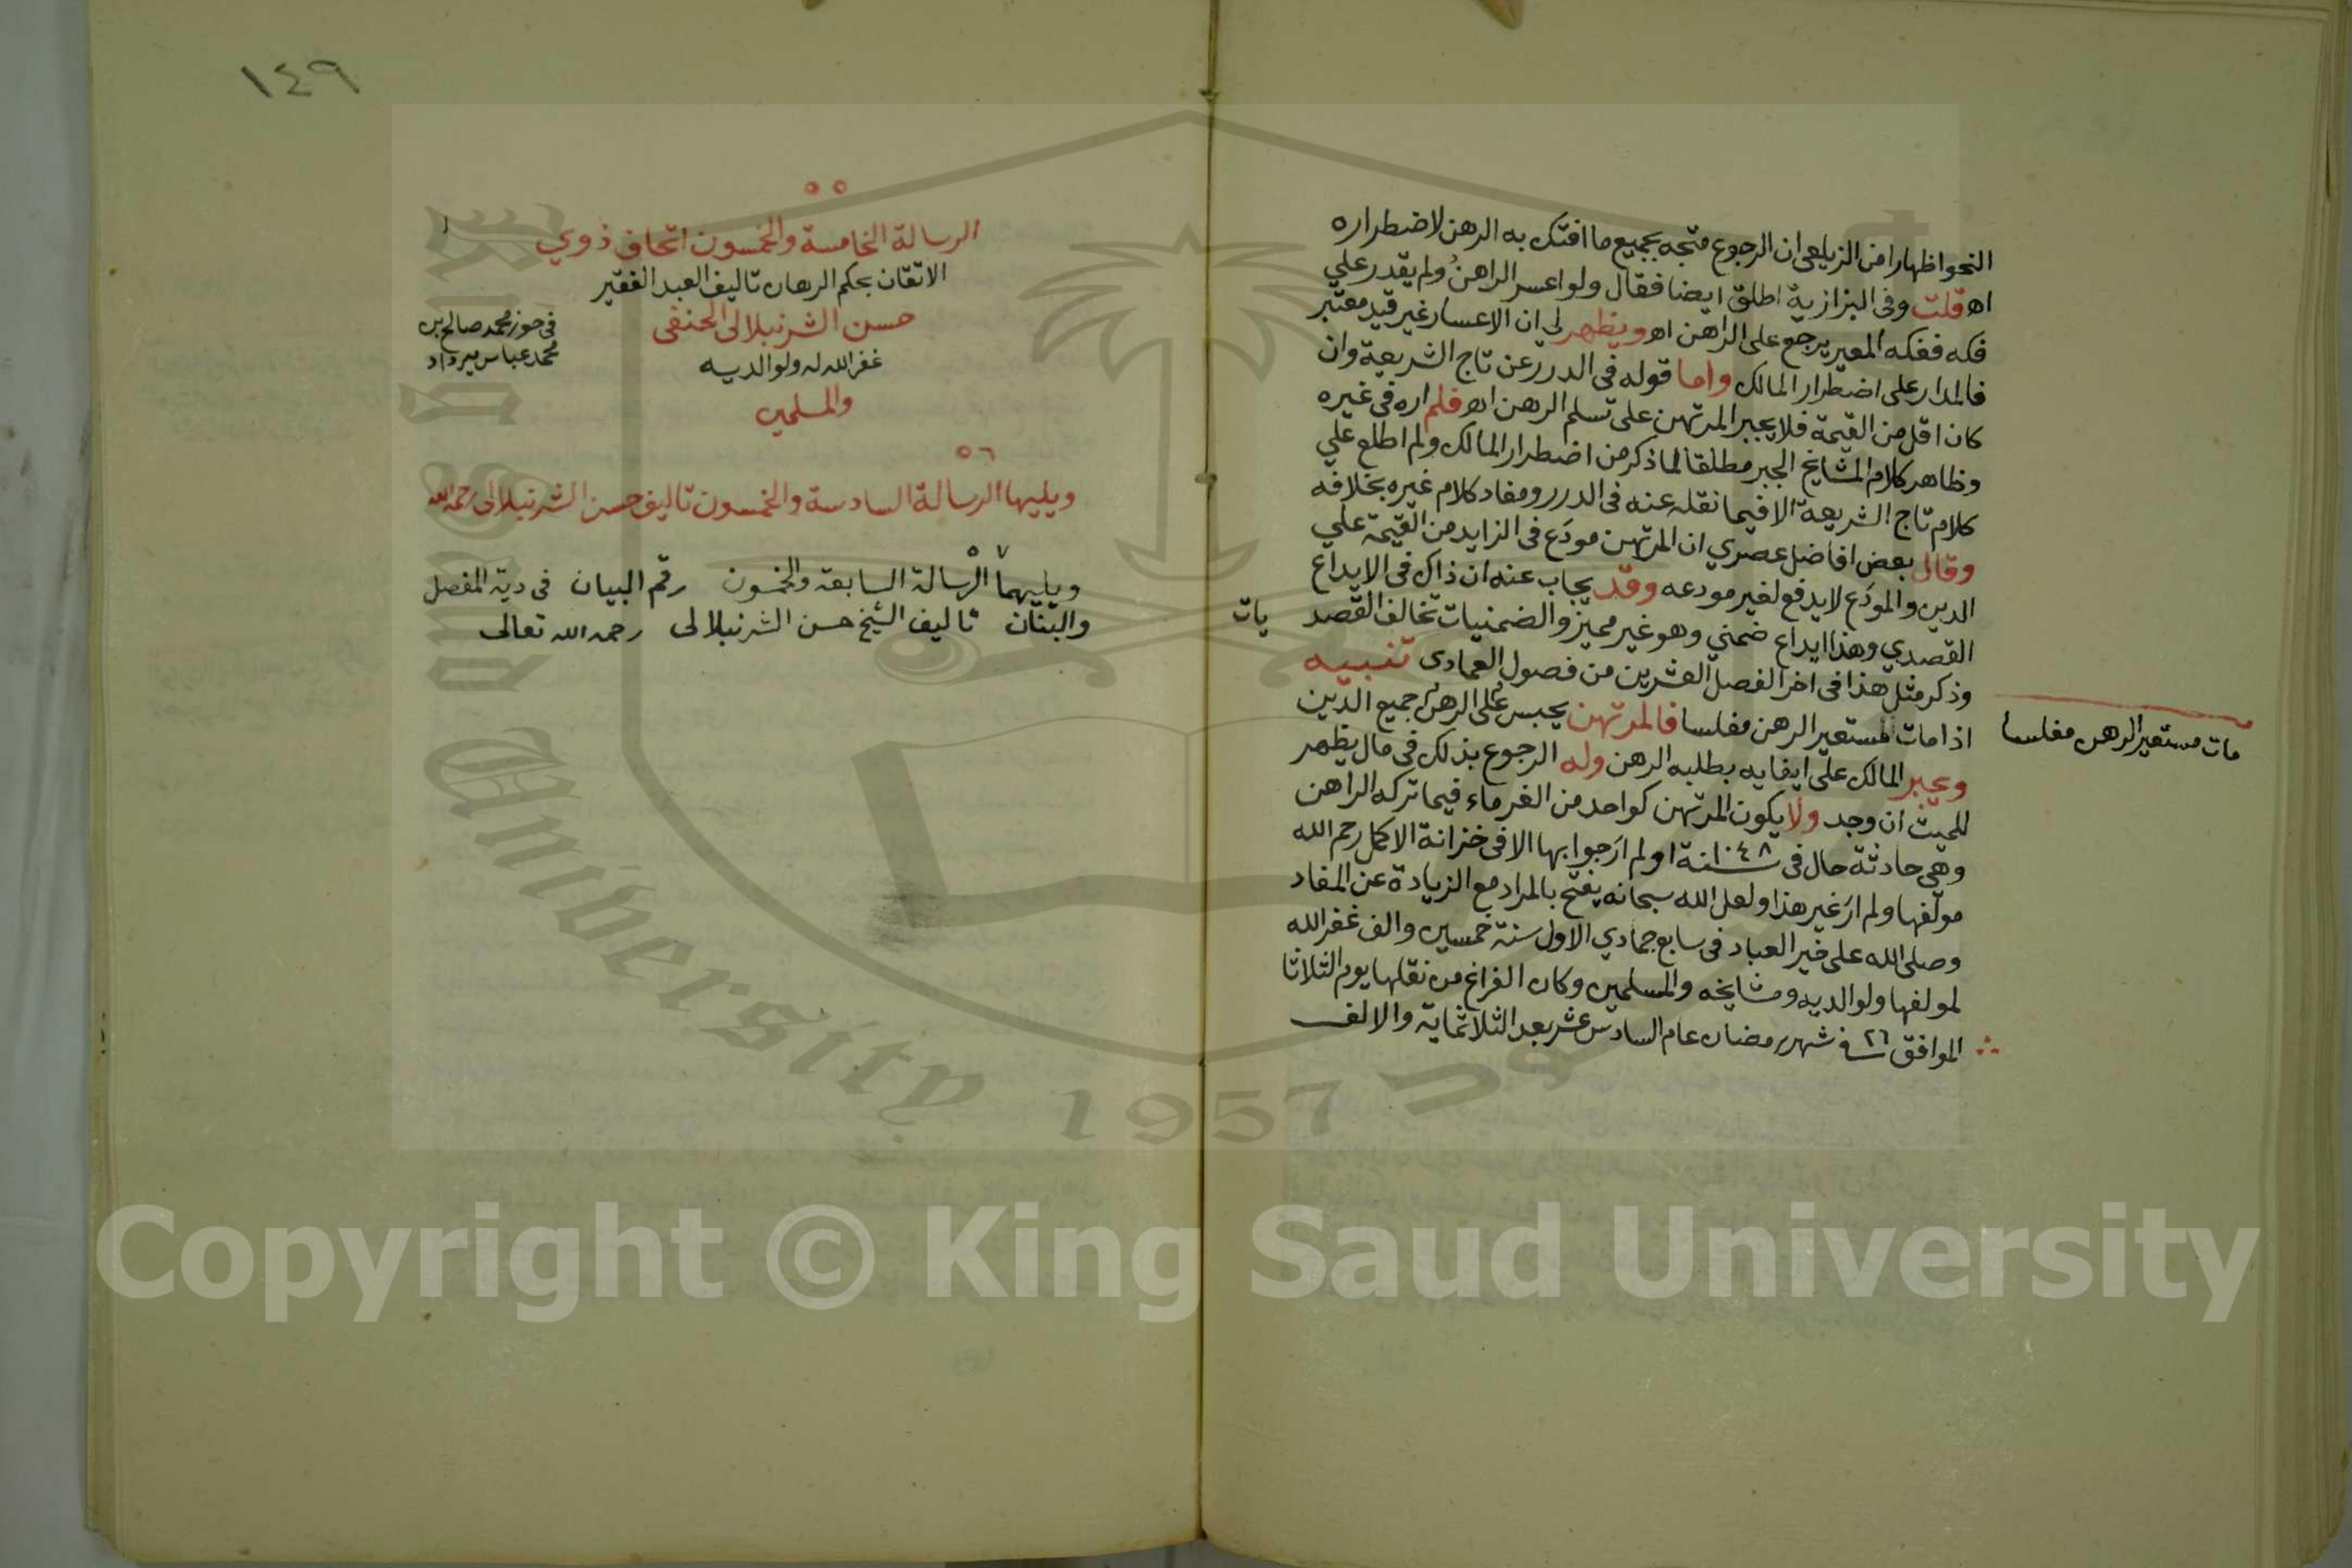 النحو اظهارا من الزيلعي ان الرجوع متجه بجميع ما افتك به الرهن لاضطراره
اه قلت وفى البزازية اطلق ايضا فقال ولو اعسر الراهن ولم يقدر علي
فكه ففكه المعير يرجع على الراهن اه ويظهر لي ان الاعسار غير قيد معتبر
فالمدار على اضطرار المالك واما قوله فى الدرر عن تاج الشريعة وان
كان اقل من القيمة فلا يجبر المرتهن على تسلم الرهن اه فلم اره فى غيره
وظاهر كلام المشايخ الجبر مطلقا لما ذكر من اضطرار المالك ولم اطلع علي
كلام تاج الشريعة الا فيما نقله عنه فى الدرر ومفاد كلام غيره بخلافه
وقال بعض افاضل عصري ان المرتهن مودَع فى الزايد من القيمة علي
الدين والمودَع لا يدفع لغير مودعه وقد يجاب عنه ان ذاك فى الايداع
القصدي وهذا ايداع ضمني وهو غير مميز والضمنيات تخالف القصد يات
وذكر مثل هذا فى اخر الفصل العشرين من فصول العمادى تنبيه
اذا مات مستعير الرهن مفلسا فالمرتهن يحبس على الرهن جميع الدين
مات مستعير الرهن مفلسا
ويجبر المالك على ايفايه بطلبه الرهن وله الرجوع بذلك فى مال يظهر
للميت ان وجد ولا يكون المرتهن كواحد من الغرماء فيما تركه الراهن
وهى حادثة حال فى سنة ١٠٤٨ ولم ارَ جوابها الا فى خزانة الاكمل رحم الله
مولفها ولم ارَ غير هذا ولعل الله سبحانه يفتح بالمراد مع الزيادة عن المفاد
وصلى الله على خير العباد فى سابع جمادي الاول سنة خمسين والف غفر الله
لمولفها ولوالديه ومشايخه والمسلمين وكان الفراغ من نقلها يوم الثلاثا
الموافق ٢٦ فى شهر رمضان عام السادس عشر بعد الثلاثماية والالف
١٤٩
٥٥
الرسالة الخامسة والخمسون اتحاف ذوي
الاتقان بحكم الرهان تاليف العبد الفقير
حسن الشرنبلالى الحنفى
غفر الله له ولوالديه
والمسلمين
فى حوز محمد صالح بن
محمد عباس ميرداد
٥٦
ويليها الرسالة السادسة والخمسون تاليف حسن الشرنبلالى رحمه الله
٥٧
ويليهما الرسالة السابعة والخمسون رقم البيان فى دية المفصل
والبنان تاليف الشيخ حسن الشرنبلالى رحمه الله تعالى
King Saud University 1957
Copyright © King Saud University